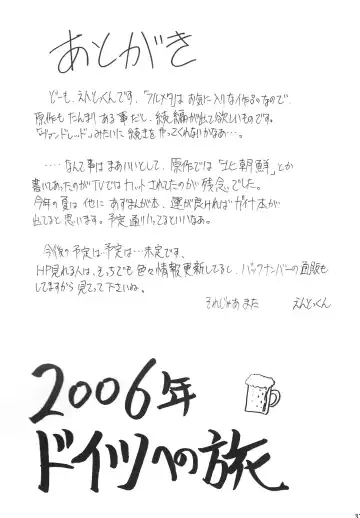 あとがき
どーも、えんとっくんです、「フルメタ」はお気に入りな作品なので、
原作も たんまり ある事だし、続編が出て欲しいものです。
「ヴァンドレッド」みたいに続きをやってくれないかなぁ…。
‥‥なんて事は まあいいとして、原作では「北朝鮮」とか
書いてあったのがTVではカットされてたのが残念でした。
今年の夏は 他に あずまんが本、運が良ければガイナ本が
出てると思います。予定通りいってるといいなぁ。
今後の予定は…予定は…未定です、
HP見れる人は、そっちでも 色々情報更新してるし、バックナンバーの通販も
してますから 見てって下さいね。
それじゃあ また えんとっくん
2006年
ドイツへの旅